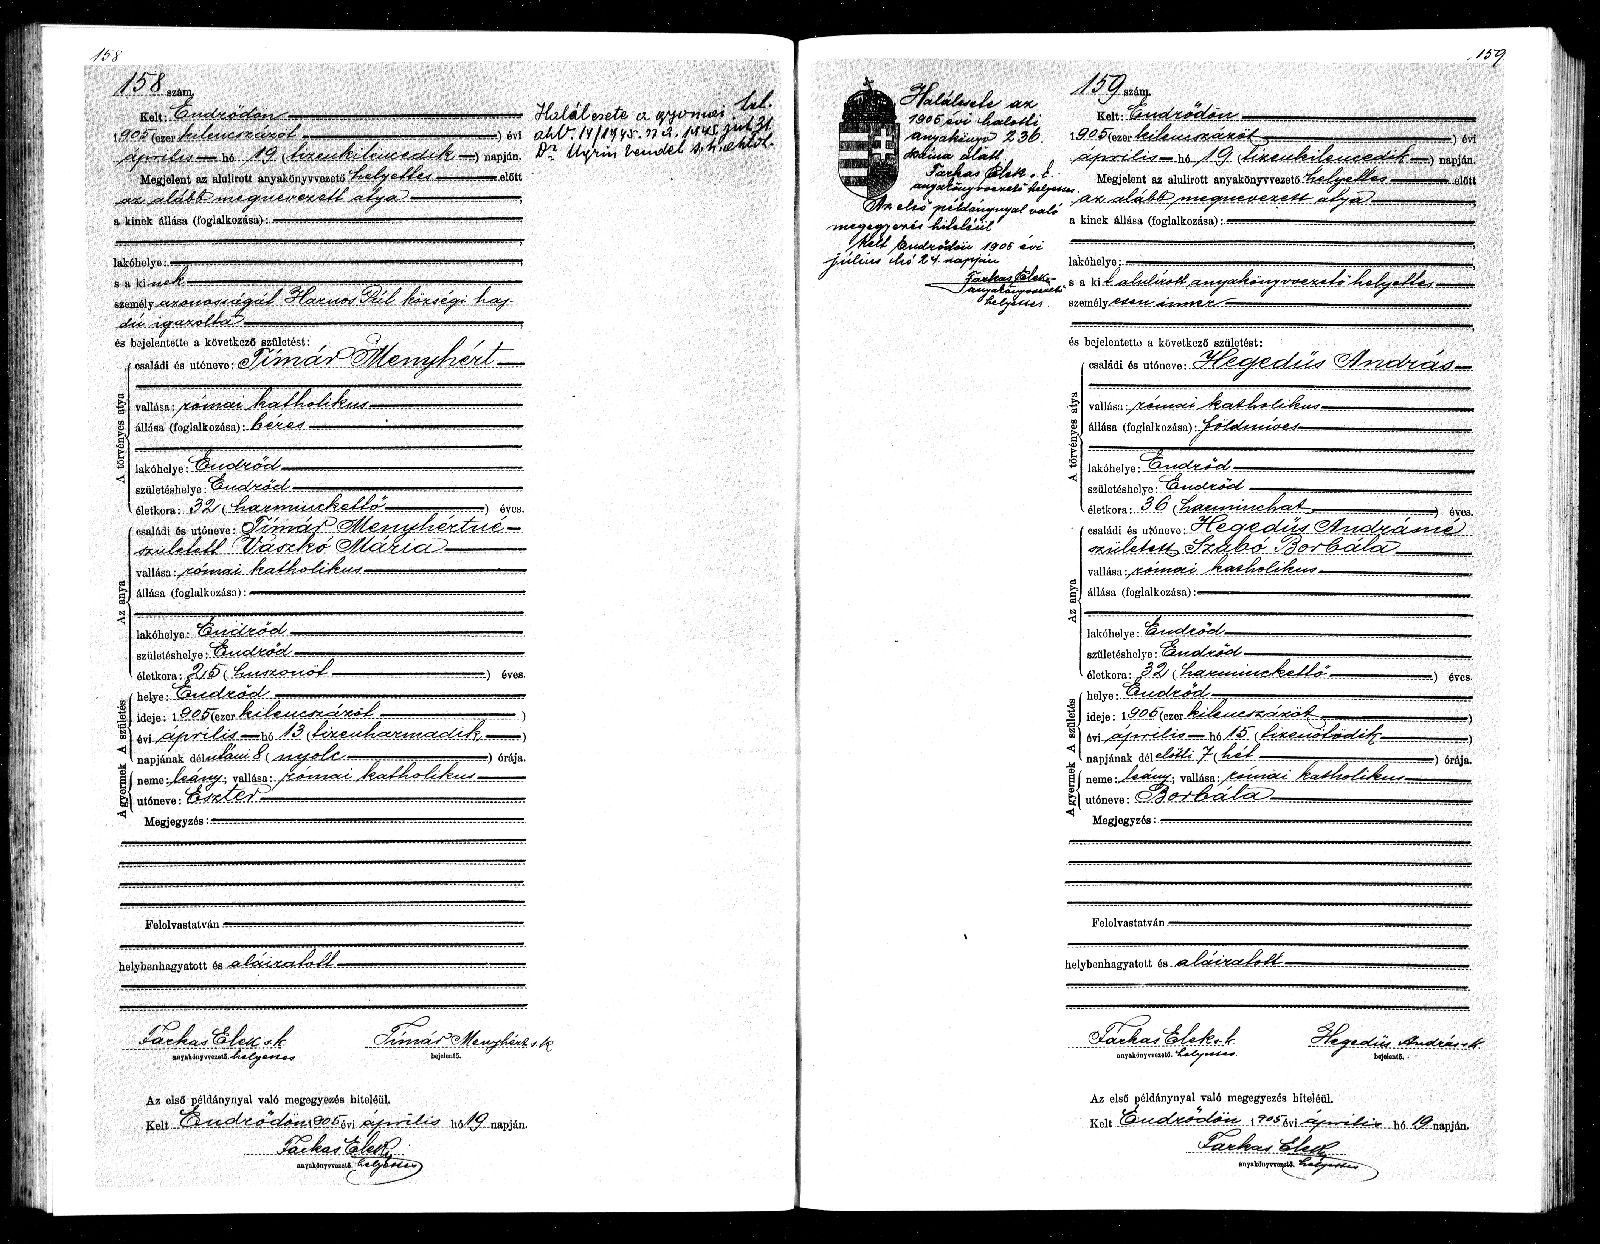 158
158 szám.
Kelt: Endrődön
1905 (ezer kilencszázöt) évi
április hó 19 (tizenkilencedik) napján.
Megjelent az alulirott anyakönyvvezető helyettes előtt
az alább megnevezett atya
a kinek állása (foglalkozása):
lakóhelye:
s a kinek
személyazonosságát Harnos Pál községi haj-
dú igazolta
és bejelentette a következő születést:
A törvényes atya
családi és utóneve: Tímár Menyhért
vallása: római katholikus
állása (foglalkozása): béres
lakóhelye: Endrőd
születéshelye: Endrőd
életkora: 32 (harminckettő) éves.
Az anya
családi és utóneve: Tímár Menyhértné
született Vaszkó Mária
vallása: római katholikus
állása (foglalkozása):
lakóhelye: Endrőd
születéshelye: Endrőd
életkora: 25 (huszonöt) éves.
A születés
helye: Endrőd
ideje: 1905 (ezer kilencszázöt)
évi április hó 13 (tizenharmadik)
napjának délutáni 8 (nyolc) órája.
A gyermek
neme: leány; vallása: római katholikus
utóneve: Eszter
Megjegyzés:
Felolvastatván
helybenhagyatott és aláiratott
Farkas Elek s.k. Tímár Menyhért s.k.
anyakönyvvezető helyettes bejelentő.
Az első példánynyal való megegyezés hiteléül.
Kelt Endrődön 1905 évi április hó 19 napján.
Farkas Elek
anyakönyvvezető helyettes
Halálesete a gyomai
14/1945.
Dr Ugrin Vendel
159
Halálesete az
1905 évi halotti
anyakönyv 236.
száma alatt
Farkas Elek s.k.
anyakönyvvezető helyettes.
Az első példánynyal való
megegyezés hiteléül
Kelt Endrődön 1905 évi
július hó 24 napján
Farkas Elek
anyakönyvvezető
helyettes.
159 szám.
Kelt: Endrődön
1905 (ezer kilencszázöt) évi
április hó 19 (tizenkilencedik) napján.
Megjelent az alulirott anyakönyvvezető helyettes előtt
az alább megnevezett atya
a kinek állása (foglalkozása):
lakóhelye:
s a kit alulirott anyakönyvvezető helyettes
személyesen ismer
és bejelentette a következő születést:
A törvényes atya
családi és utóneve: Hegedüs András
vallása: római katholikus
állása (foglalkozása): földmives
lakóhelye: Endrőd
születéshelye: Endrőd
életkora: 36 (harminchat) éves.
Az anya
családi és utóneve: Hegedüs Andrásné
született Szabó Borbála
vallása: római katholikus
állása (foglalkozása):
lakóhelye: Endrőd
születéshelye: Endrőd
életkora: 32 (harminckettő) éves.
A születés
helye: Endrőd
ideje: 1905 (ezer kilencszázöt)
évi április hó 15 (tizenötödik)
napjának délelőtti 7 (hét) órája.
A gyermek
neme: leány; vallása: római katholikus
utóneve: Borbála
Megjegyzés:
Felolvastatván
helybenhagyatott és aláiratott
Farkas Elek s.k. Hegedüs András s.k.
anyakönyvvezető helyettes. bejelentő.
Az első példánynyal való megegyezés hiteléül.
Kelt Endrődön 1905 évi április hó 19 napján.
Farkas Elek
anyakönyvvezető helyettes